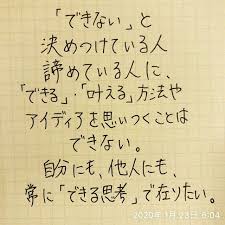 「できない」と
決めつけている人
諦めている人に、
「できる」・「叶える」方法や
アイディアを思いつくことは
できない。
自分にも、他人にも、
常に「できる思考」で在りたい。
2020年 1月 23日 6:04